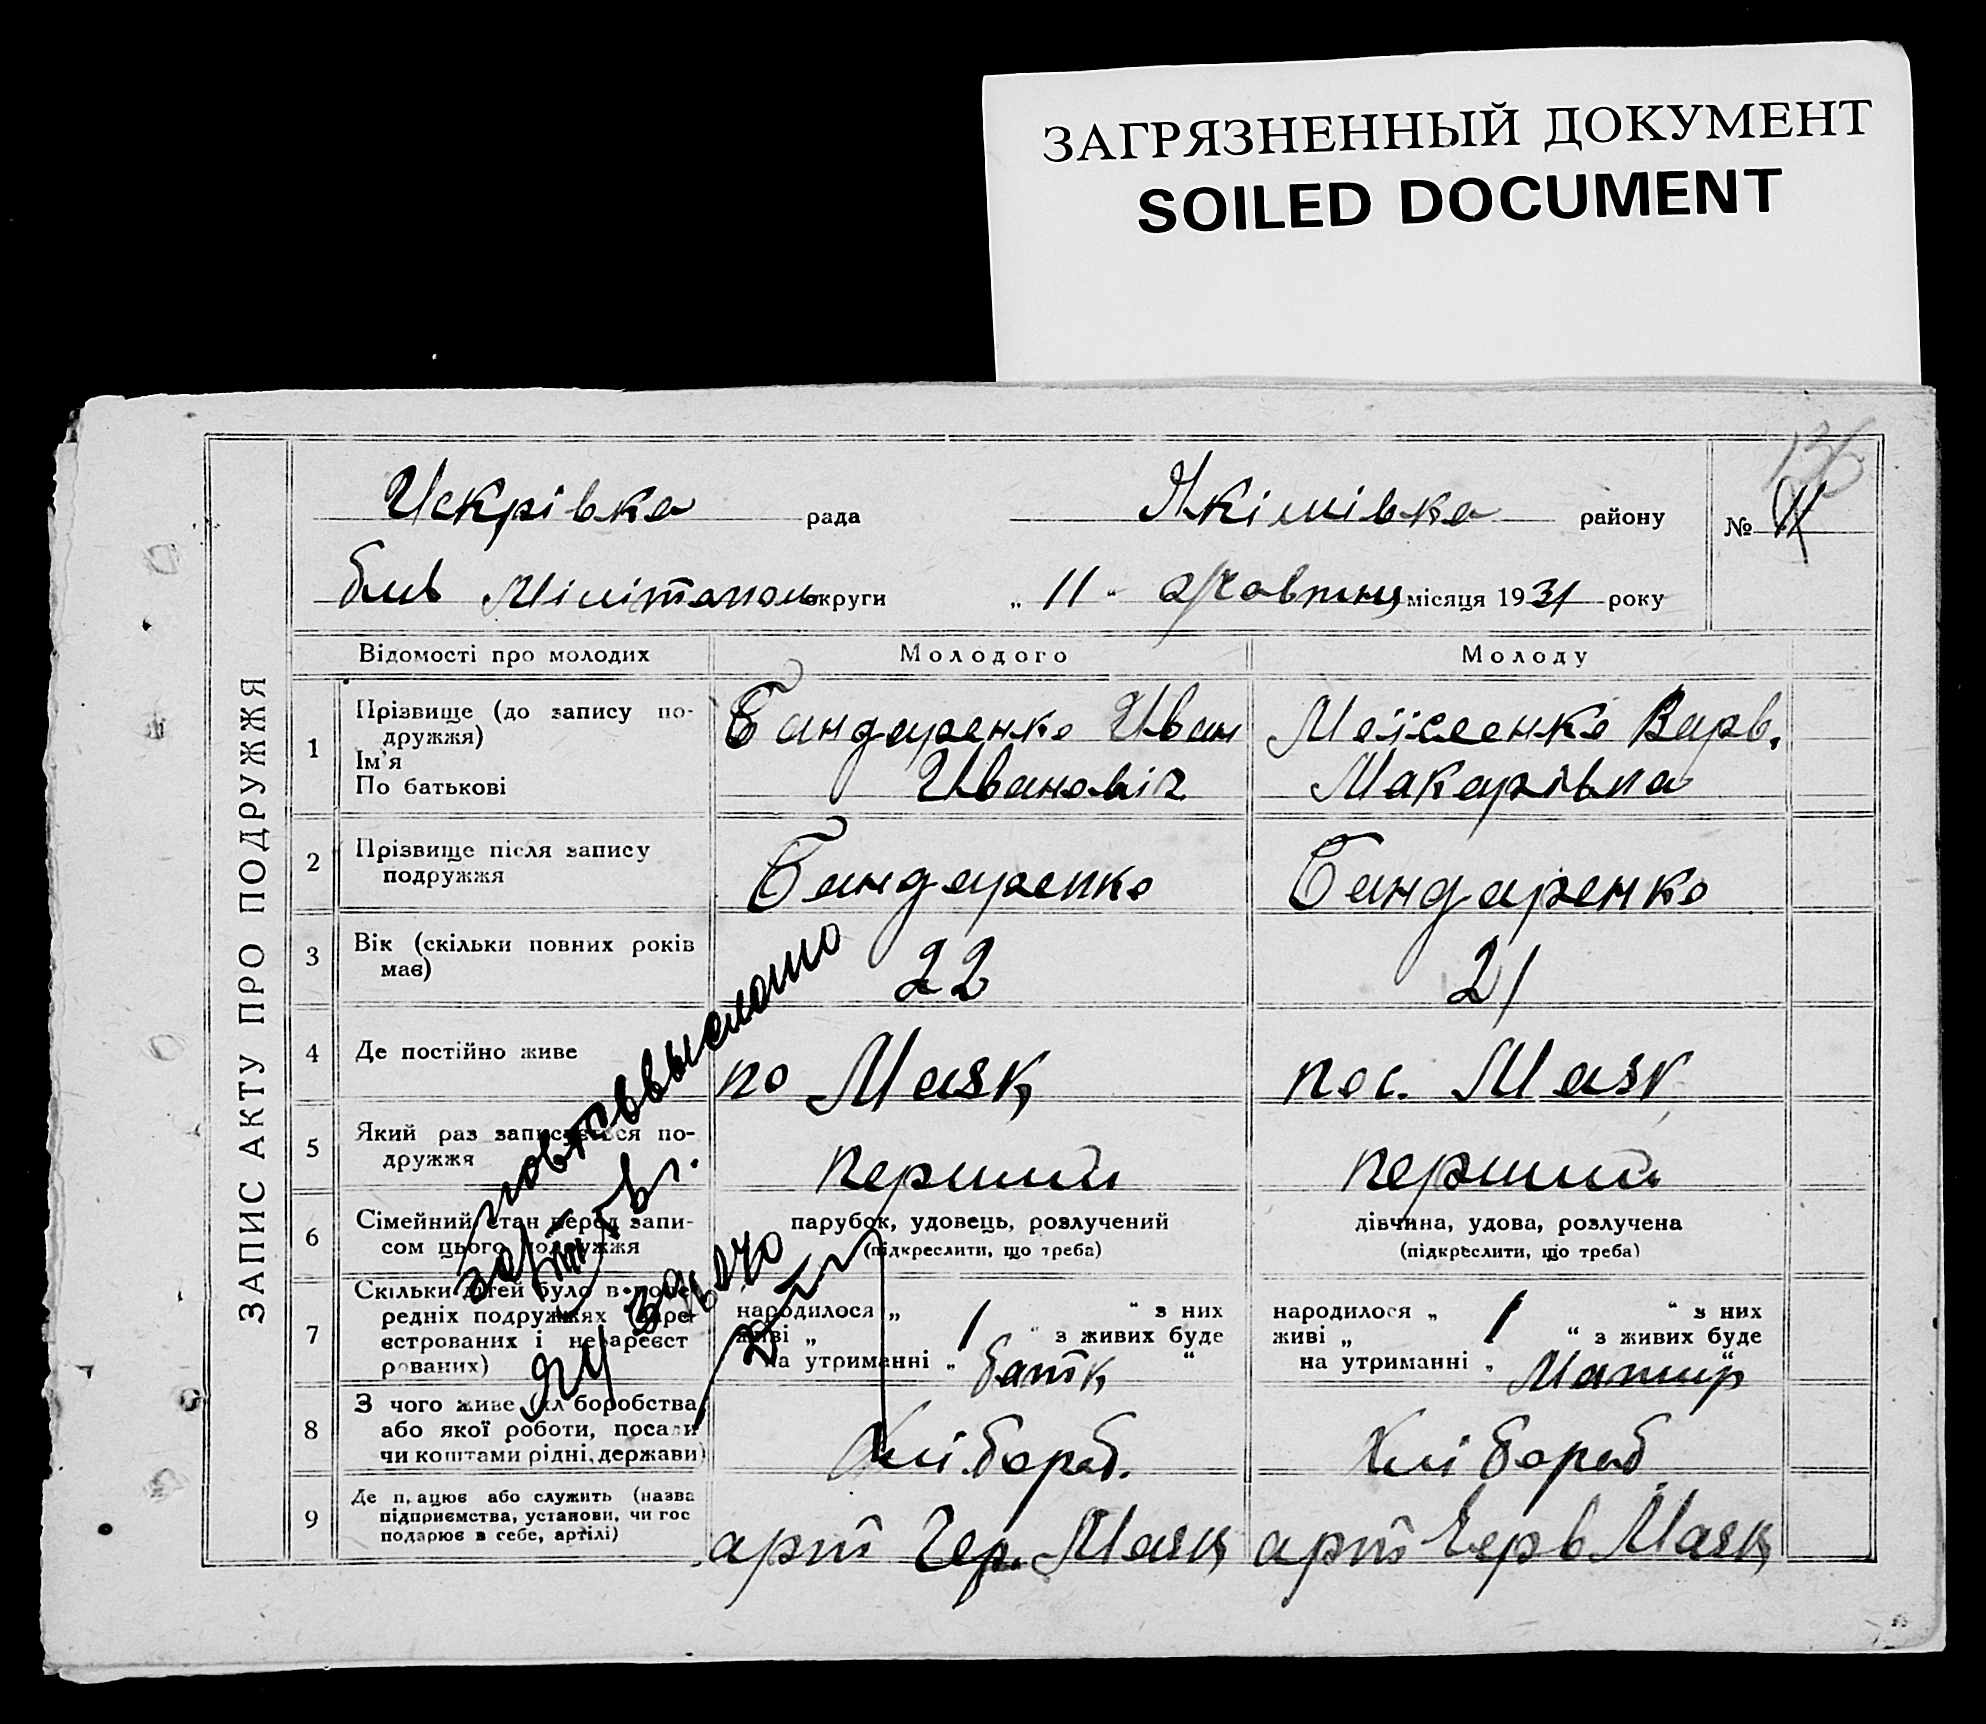 ЗАГРЯЗНЕННЫЙ ДОКУМЕНТ
SOILED DOCUMENT
136
Искрівка рада Якімівка району № 11
бив Мілітополь округи „ 11 “ Жовтня місяця 1931 року
ЗАПИС АКТУ ПРО ПОДРУЖЖЯ
Відомості про молодих Молодого Молоду
1 Прізвище (до запису по-
дружжя)
Ім'я
По батькові
Бандаренко Иван
Ивановіч
Моісеенко Варв.
Макарівна
2 Прізвище після запису
подружжя
Бандаренко Бандаренко
3 Вік (скільки повних років
має)
22 21
4 Де постійно живе по Маяк пос. Маяк
5 Який раз записується по-
дружжя
перший перший
6 Сімейний стан перед запи-
сом цього подружжя
парубок, удовець, розлучений
(підкреслити, що треба)
дівчина, удова, розлучена
(підкреслити, що треба)
7 Скільки дітей було в попе-
редніх подружжях (заре-
єстрованих і незареєст
рованих)
народилося „ “ з них
живі „ “ з живих буде
на утриманні „ “
батк
народилося „ “ з них
живі „ “ з живих буде
на утриманні „ “
Матир
8 З чого живе (хл боробства,
або якої роботи, посади
чи коштами рідні, держави)
Хлібороб. Хлібороб
9 Де працює або служить (назва
підприємства, установи, чи гос
подарює в себе, артілі)
арт Чер. Маяк арт Черв Маяк
повт. выслано